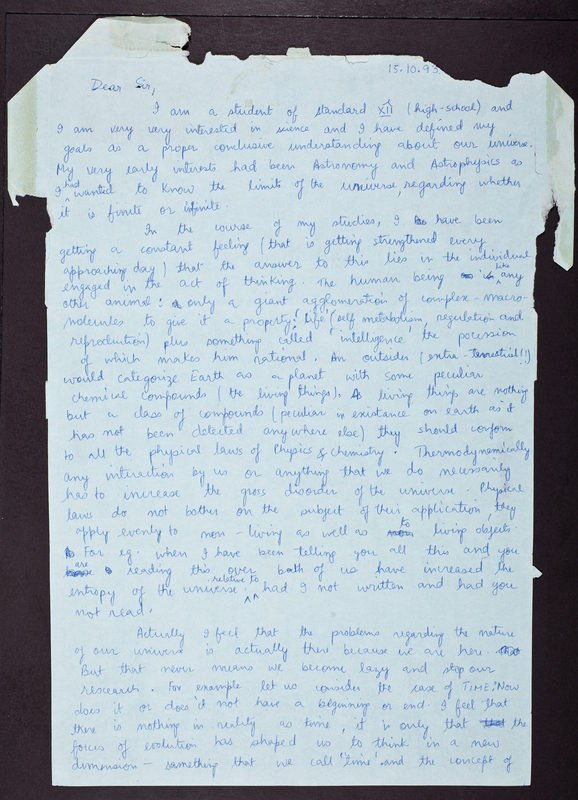 15.10.93
Dear Sir,
I am a student of standard XII (high-school) and
I am very very interested in science and I have defined my
goals as a proper conclusive understanding about our universe.
My very early interests had been Astronomy and Astrophysics as
I had wanted to know the limits of the universe, regarding whether
it is finite or infinite.
In the course of my studies, I have been
getting a constant feeling (that is getting strengthened every
approaching day) that the answer to this lies in the individual
engaged in the act of thinking. The human being is like any
other animal: only a giant agglomeration of complex-macro-
molecules to give it a property 'life' (self metabolism, regulation and
reproduction) plus something called 'intelligence', the pocession
of which makes him rational. An outsider (extra-terrestrial!!)
would categorize Earth as a planet with some peculiar
chemical compounds (the living things). As living things are nothing
but a class of compounds (peculiar in existance on earth as it
has not been detected anywhere else) they should conform
to all the physical laws of Physics & chemistry. Thermodynamically
any interaction by us or anything that we do necessarily
has to increase the gross disorder of the universe. Physical
laws do not bother on the subject of their application, they
apply evenly to non-living as well as to living objects.
For eg. when I have been telling you all this and you
are reading this over both of us have increased the
entropy of the universe relative to had I not written and had you
not read.
Actually I feel that the problems regarding the nature
of our universe is actually there because we are here.
But that never means we become lazy and stop our
research. For example let us consider the case of TIME. Now
does it or does'd not have a beginning or end. I feel that
there is nothing in reality as time, it is only that the
forces of evolution has shaped us to think in a new
dimension - something that we call 'time' and the concept of